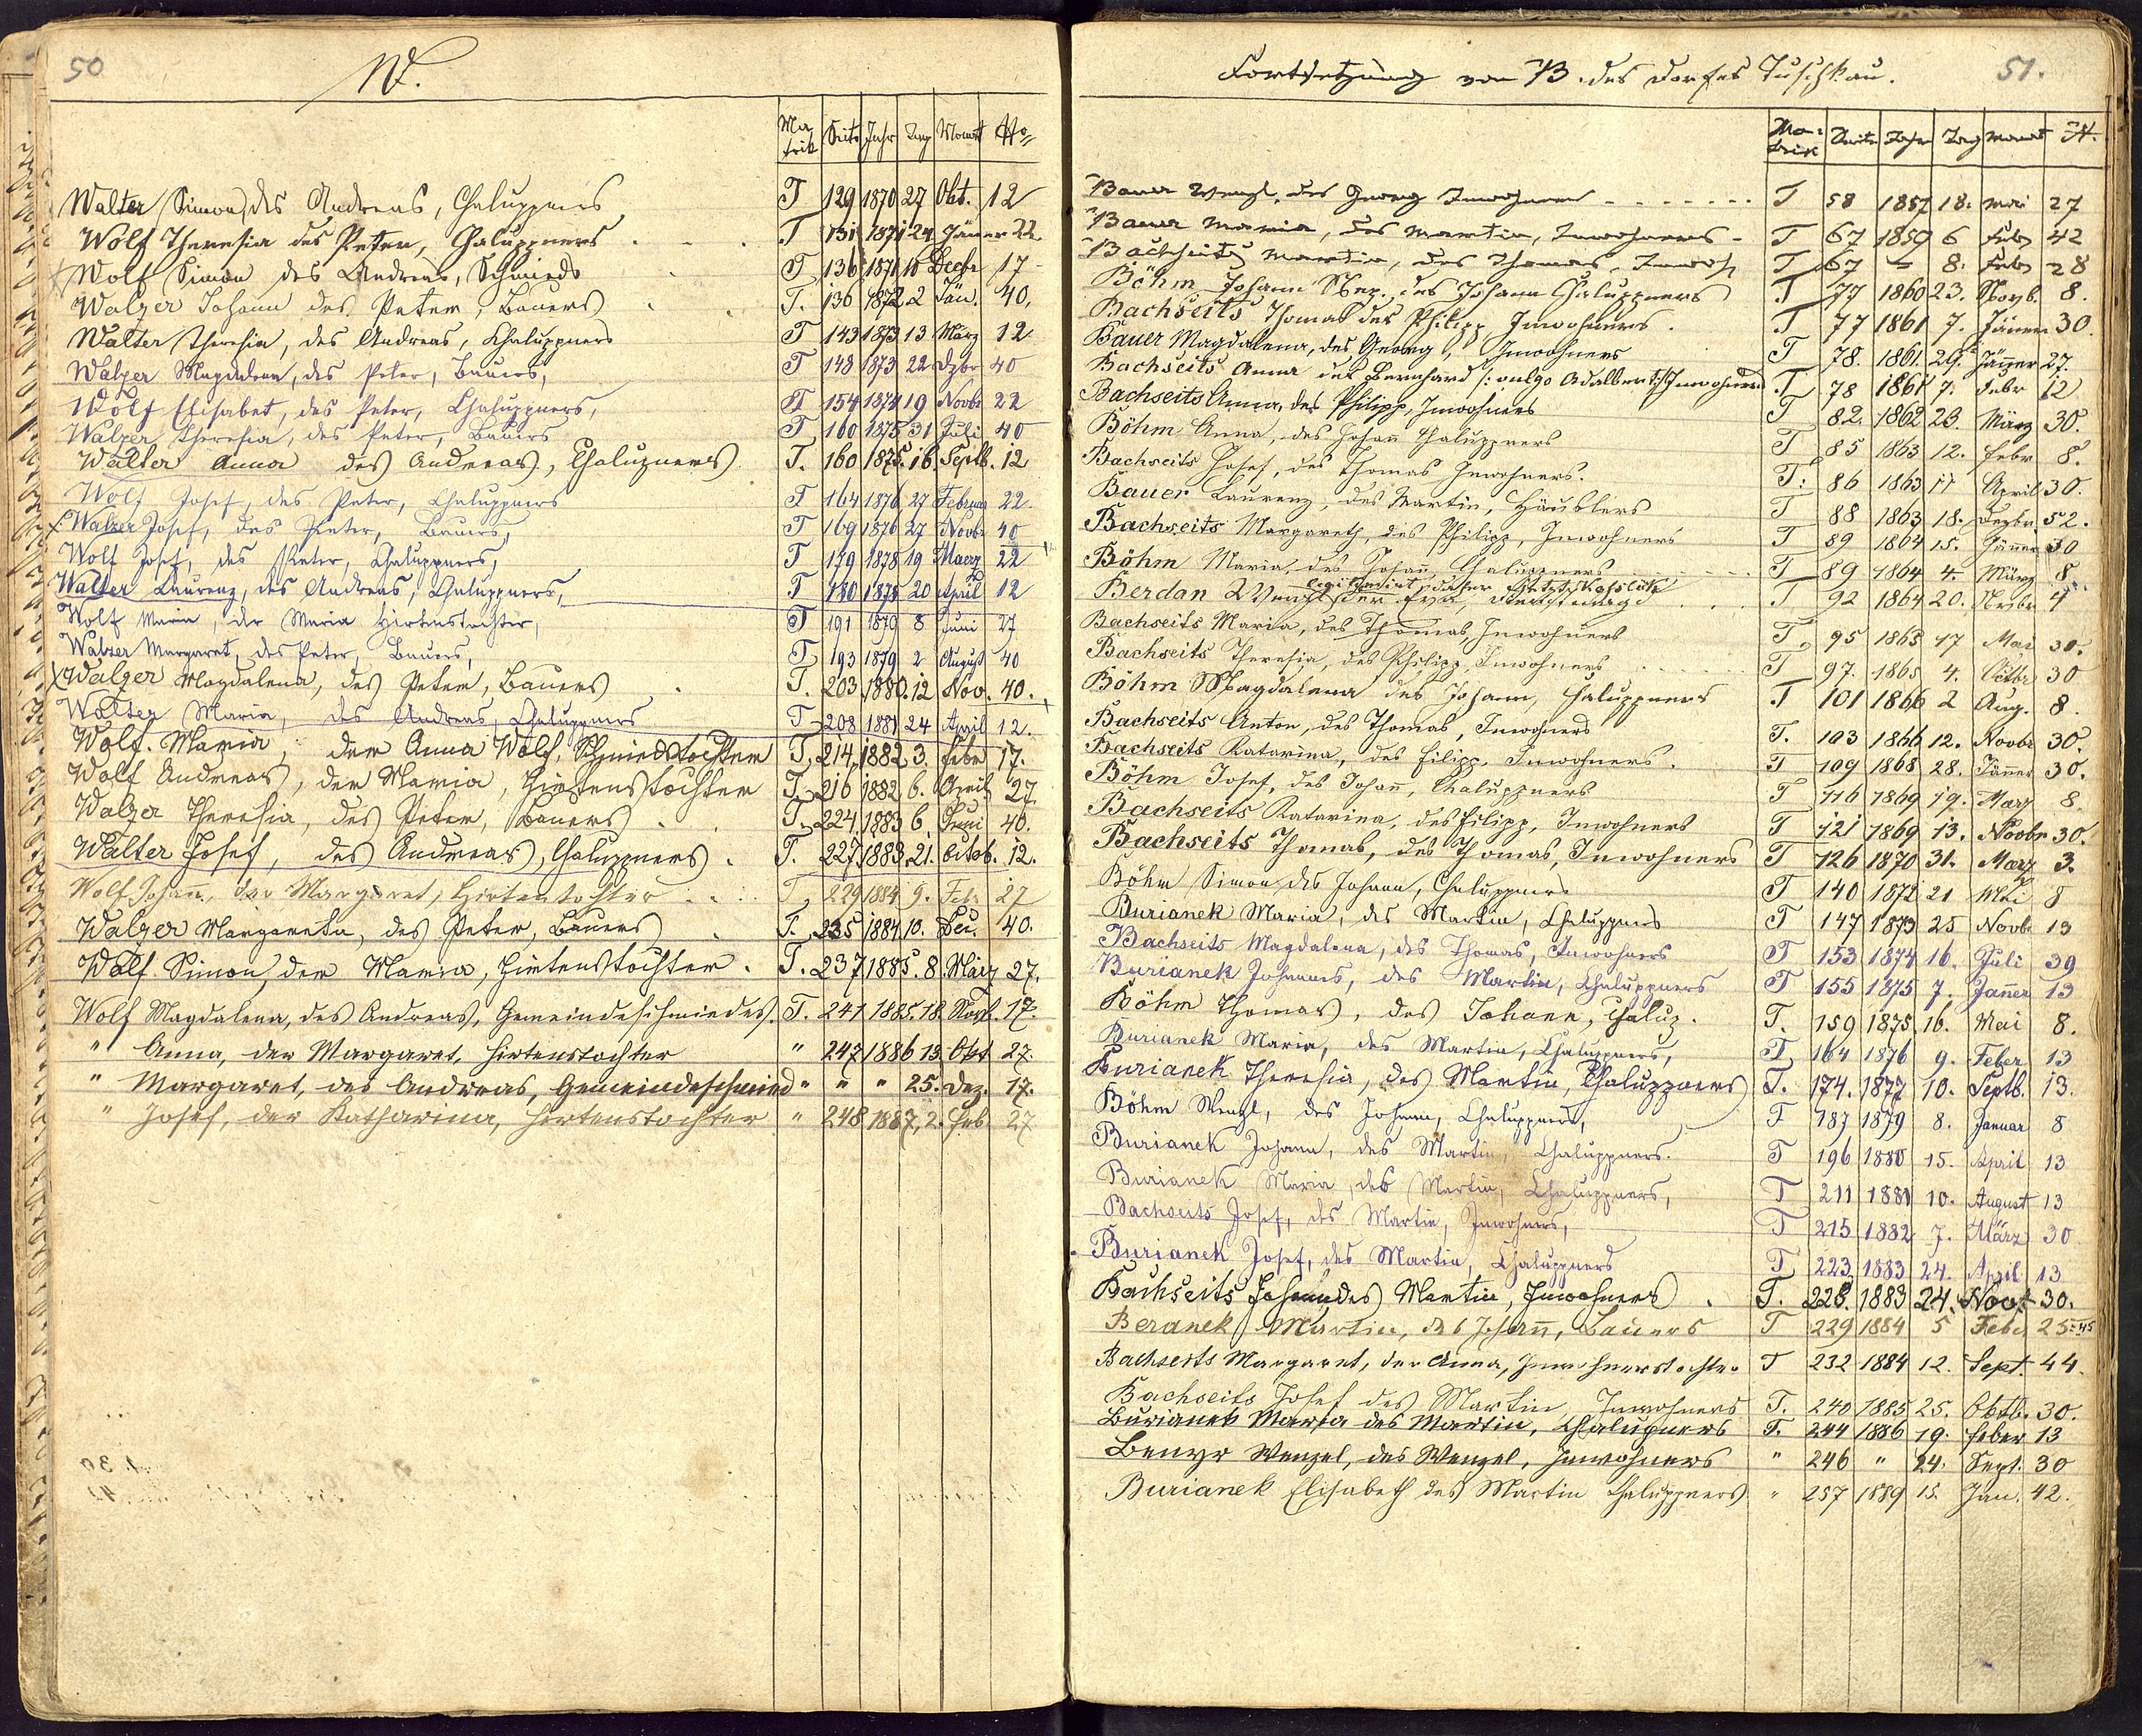 50
W.
Ma-trik Seite Jahr Tag Monat No
Walter Simon, des Andreas, Chaluppners T 129 1870 27 Okt. 12
Wolf Theresia des Peter, Chaluppners T 131 1871 24 Jäner 22
Wolf Simon des Andreas, Schmieds T 136 1871 18 Decbr 17
Walzer Johann des Peter, Bauers T. 136 1872 2 Jän. 40.
Walter Theresia, des Andreas, Chaluppners T 143 1873 13 März 12
Walzer Magdalena, des Peter, Bauers, T 148 1873 22 Dzbr 40
Wolf Elisabet, des Peter, Chaluppners, T 154 1874 19 Novbr 22
Walzer Theresia, des Peter, Bauers T 160 1875 31 Juli 40
Walter Anna des Andreas, Chalupners T. 160 1875. 16. Septb. 12
Wolf Josef, des Peter, Chaluppners T 164 1876 27 Februar 22
x Walzer Josef, des Peter, Bauers, T 169 1876 27 Novbr 40
Wolf Josef, des Peter, Chaluppners, T 179 1878 19 Maerz 22
Walter Laurenz, des Andreas, Chaluppners, T 180 1878 20 April 12
Wolf Maria, der Maria Hirtenstochter, T 191 1879 8 Juni 27
Walzer Margaret, des Peter, Bauers, T 193 1879 2 August 40
x Walzer Magdalena, des Peter, Bauers T. 203 1880. 12 Nov. 40.
Walter Maria, des Andreas, Chaluppners T 208 1881 24 April 12.
Wolf. Maria, der Anna Wolf, Schmiedstochter T. 214 1882 3. Febr 17.
Wolf Andreas, der Maria, Hirtenstochter T. 216 1882 6. April 27.
Walzer Theresia, des Peter, Bauers T. 224. 1883 6. Juni 40.
Walter Josef, des Andreas, Chaluppners. T. 227. 1883. 21. Octob. 12.
Wolf Johann, der Margaret, Hirtentochter T. 229 1884 9. Feb. 27
Walzer Margareta, des Peter, Bauers T. 235 1884. 10. Dec. 40.
Wolf Simon, der Maria, Hirtenstochter. T. 237. 1885. 8. März 27.
Wolf Magdalena, des Andreas, Gemeindeschmiedes. T. 241 1885. 18. Novb. 17.
" Anna, der Margaret, Hirtenstochter " 247 1886 13. Okt 27.
" Margaret, des Andreas, Gemeindeschmied " " " 25. Dez. 17.
" Josef, der Katharina, Hirtenstochter " 248 1887, 2. Feb 27
Fortsetzung von B des Dorfes Tuschkau. 51.
Ma-trik Seite Jahr Tag Monat N.
Bauer Wenzl, des Georg Inwohners T 58 1857 18. Mai 27
Bauer Maria, des Martin, Inwohners - T 67 1859 6 Feb 42
Bachseits Martin, des Thomas, Inwoh T 67 - 8. Feb 28
Böhm Johann Nep. des Johann Chaluppners T 77 1860 23. Novb. 8.
Bachseits Thomas des Philipp Inwohners. T 77 1861 7. Jänner 30.
Bauer Magdalena, des Georg, Inwohners T 78. 1861 29. Jänner 27.
Bachseits Anna des Bernhard /: vulgo Adalbert :/ Inwohners T. 78 1861 7. Febr 12
Bachseits Anna, des Philipp, Inwohners T 82. 1862 23. März 30.
Böhm Anna, des Johann Chaluppners T 85 1863 12. Febr 8.
Bachseits Josef, des Thomas Inwohners. T: 86 1863 17 April 30.
Bauer Laurenz, des Martin, Häuslers T 88 1863 18. Dezbr. 52.
Bachseits Margareth, des Philipp, Inwohners T 89 1864 15. Jänner 30
Böhm Maria, des Johann, Chaluppners T 89 1864 4. März 8.
legitimirt, daher
Berdan Wenzl der Eva, Dienstmagd T 92 1864 20. 4
Bachseits Maria, des Thomas, Inwohners T. 95 1865 17 Mai 30.
Bachseits Theresia, des Philipp Inwohners T 97. 1865 4. Octbr 30
Böhm Magdalena des Johann, Chaluppners T 101 1866 2 Aug. 8.
Bachseits Anton, des Thomas, Inwohners T. 103 1866 12. Novbr 30.
Bachseits Katarina, des Filipp, Inwohners. T 109 1868 28. Jänner 30.
Böhm Josef, des Johann, Chaluppners T 116 1869 19. März 8.
Bachseits Katarina, des Filipp, Inwohners T 121 1869 13. Novbr 30.
Bachseits Thomas, des Thomas, Inwohners T 126 1870 31. März 3.
Böhm Simon, des Johann, Chaluppners T 140 1872 21 Mai 8
Burianek Maria, des Martin, Chaluppners T 147 1873 25 Novbr 13
Bachseits Magdalena, des Thomas, Inwohners T 153 1874 16. Juli 39
Burianek Johannes, des Martin, Chaluppners T 155 1875 7. Janner 13
Böhm Thomas, des Johann, Chalup. T. 159 1875. 16. Mai 8.
Burianek Maria, des Martin, Chaluppners, T 164 1876 9. Feber 13
Burianek Theresia, des Martin, Chaluppners T. 174. 1877 10. Septb. 13.
Böhm Wenzl, des Johann, Chaluppners, T 187 1879 8. Januar 8
Burianek Johann, des Martin, Chaluppners. T 196 1880 15. April 13
Burianek Maria, des Martin, Chaluppners, T 211 1881 10. August 13
Bachseits Josef, des Martin, Inwohners, T 215 1882 7. März 30
Burianek Josef, des Martin, Chaluppners T 223 1883 24. April 13
Bachseits Johann, des Martin, Inwohners. T. 228. 1883 24. Nov. 30.
Beranek Martin, des Johann, Bauers T 229 1884 5 Feber 25
Bachseits Margaret, der Anna, Inwohnerstochter T 232 1884 12. Sept. 44.
Bachseits Josef des Martin Inwohners T. 240 1885 25. Oktb. 30.
Burianek Maria des Martin, Chalupners T. 244 1886 19. Feber 13
Benyr Wenzel, des Wenzel, Inwohners " 246 " 24. Sept. 30
Burianek Elisabeth des Martin Chaluppners " 257 1889 15. Jan. 42.